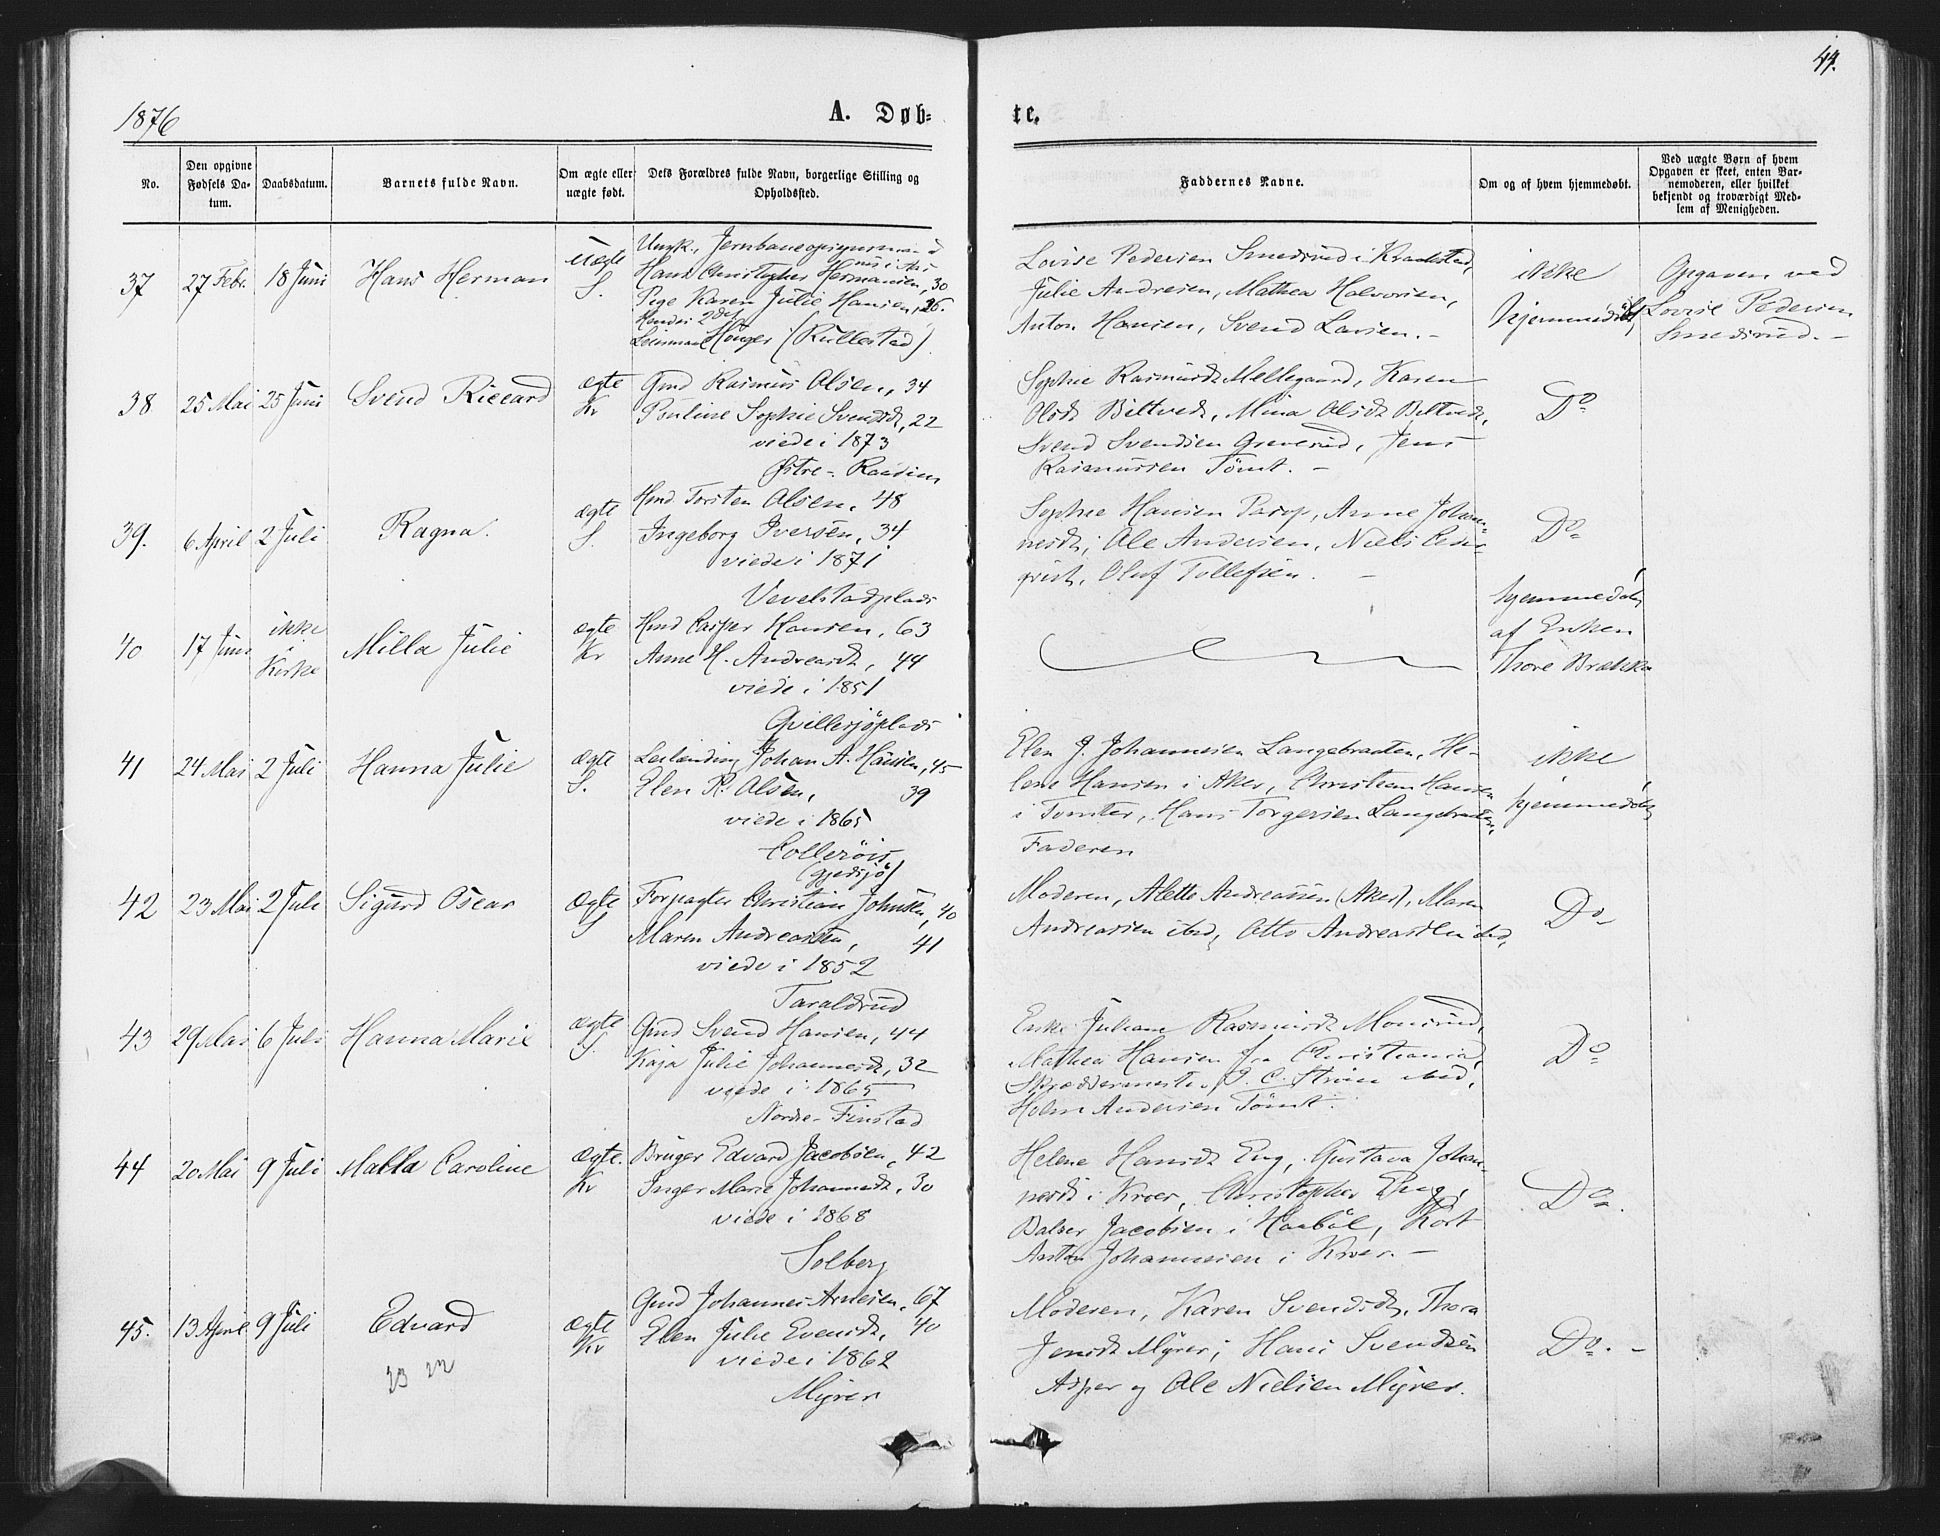 44.
1876
A. Døb-
te.
No.
Den opgivne Fødsels Da-tum.
Daabsdatum.
Barnets fulde Navn.
Om ægte eller uægte født.
Dets Forældres fulde Navn, borgerlige Stilling og Opholdssted.
Faddernes Navne.
Om og af hvem hjemmedøbt.
Ved uægte Børn af hvem Opgaven er skeet, enten Bar-nemoderen, eller hvilket bekjendt og troværdigt Med-lem af Menigheden.
37
27 Febr.
18 Juni
Hans Herman
uægte
S.
Ungk. Jernbaneopsynsmand
Hans Christopher Hermansen, 30
Pige Karen Julie Hansen, 26.
Hendes 2det
Leierm. (Kullestad)
Lovise Pedersen Smedsrud i Kraakstad,
Julie Andresen, Mathea Halvorsen,
Anton Hansen, Svend Larsen. -
ikke
hjemmedøbt
Opgaven ved
Lovise Pedersen
Smedsrud. -
38
25 Mai
25 Juni
Svend Riccard
ægte
Kr
Gmd Rasmus Olsen, 34
Pauline Sophie Svendsd, 22
viede i 1873
Østre-Raadim
Sophie Rasmusdt Mellegaard, Karen
Olsdt Biltved, Mina Olsdt Biltved,
Svend Svendsen Greverud, Jens
Rasmussen Tømt. -
Do
39.
6 April
2 Juli
Ragna.
ægte
S.
Hmd Torsten Olsen, 48
Ingeborg Iversen, 34
viede i 1871
Vevelstadplads
Sophie Hansen Parup, Anne Johan-
nesdt; Ole Andersen, Niels Ceder
qvist, Oluf Tollefsen. -
Do
40
17 Juni
ikke
i
Kirke
Milla Julie
ægte
Kr
Hmd Casper Hansen, 63
Anne H. Andreasdt, 44
viede i 1851
Qvillesjöplads
hjemmedøbt
af Enken
Thore Bråtekn
41
24 Mai
2 Juli
Hanna Julie
ægte
S.
Leilending Johan A. Hansen, 45
Elen R. Olsen, 39
viede i 1865
Collerøis
(Gjedsjö)
Elen J. Johannesen Langebraaten, He-
lene Hansen i Aker, Christian Hansen
i Tomter, Hans Torgersen Langebraaten,
Faderen
ikke
hjemmedøbt
42
23 Mai
2 Juli
Sigurd Oscar
ægte
S
Forpagter Christian Johnsen, 40
Maren Andreasen, 41
viede i 1852
Taraldrud
Moderen, Alette Andreassen (Aker), Maren
Andreassen ibid, Otto Andreassen ibid,
Do
43
29 Mai
6 Juli
Hanna Marie
ægte
S.
Gmd Svend Hansen, 44
Kaja Julie Johannesdt, 32
viede i 1865
Nordre-Finstad
Enke Juliane Rasmusdt Monsrud,
Mathea Hansen fra Christiania,
Skræddermester J. C. Strøm ibid,
Holm Andersen Tømt.
Do
44
20 Mai
9 Juli
Malla Caroline
ægte.
Kr
Bruger Edvard Jacobsen, 42
Inger Marie Johannesdt, 30
viede i 1868
Solberg
Helene Hansdt Eng, Gustava Johan-
nesdt i Kroer, Christopher Eng,
Balser Jacobsen i Haabøl, Kort
Anton Johannesen i Kroer. -
Do.
45.
13 April
9 Juli
Edvard
ægte
Kr
Gmd Johannes Arnesen, 67
Elen Julie Evensdt, 40
viede i 1862
Myrer
Moderen, Karen Svendsdt, Thora
Jensdt Myrer; Hans Svendsen
Asper og Ole Nielsen Myrer.
Do. -
23 22